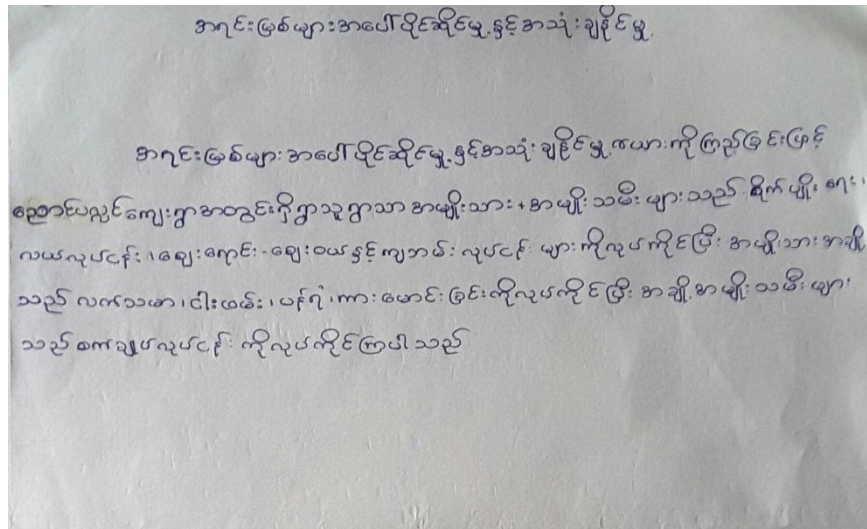 အရင်းမြစ်များအပေါ်ပိုင်ဆိုင်မှု့နှင့်အသုံးချနိုင်မှု့
အရင်းမြစ်များအပေါ်ပိုင်ဆိုင်မှု့နှင့်အသုံးချနိုင်မှု့ဇယားကိုကြည့်ခြင်းဖြင့်
ညောင်ပလ္လင်ကျေးရွာအတွင်းရှိရွာသူရွာသားအမျိုးသား+အမျိုးသမီးများသည် စိုက်ပျိုးရေး၊
လယ်လုပ်ငန်း၊ဈေးရောင်း-ဈေးဝယ်နှင့်ကျဘမ်းလုပ်ငန်းများကိုလုပ်ကိုင်ပြီး အမျိုးသားအချို့
သည် လက်သမာ၊ငါးဖမ်း၊ပန်ရံ၊ကားမောင်းခြင်းကိုလုပ်ကိုင်ပြီး အချို့အမျိုးသမီးများ
သည်စက်ချုပ်လုပ်ငန်းကိုလုပ်ကိုင်ကြပါသည်